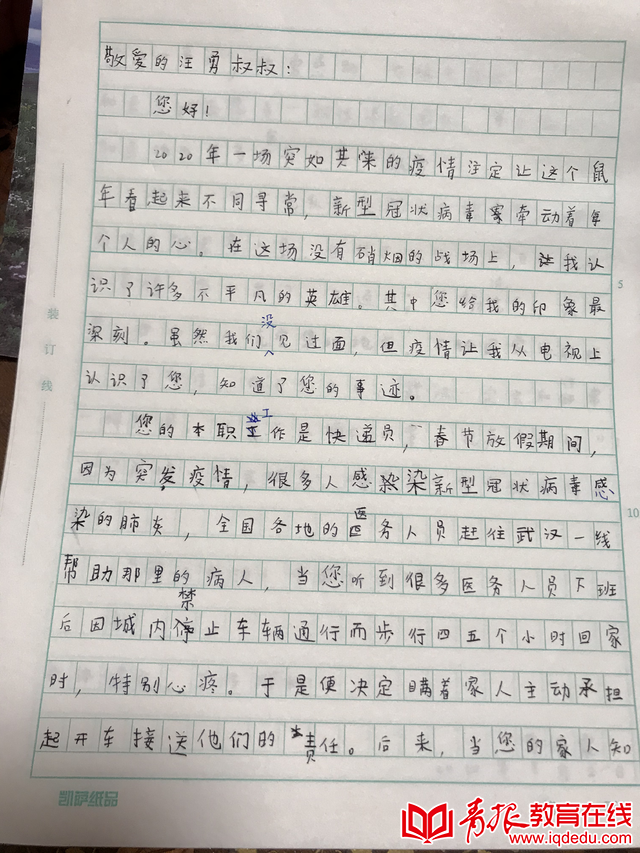 敬爱的汪勇叔叔：
您好！
2020年一场突如其来的疫情注定让这个鼠
年看起来不同寻常，新型冠状病毒牵动着每
个人的心。在这场没有硝烟的战场上，我认
识了许多不平凡的英雄。其中您给我的印象最
深刻。虽然我们没见过面，但疫情让我从电视上
认识了您，知道了您的事迹。
您的本职工作是快递员，春节放假期间，
因为突发疫情，很多人感染新型冠状病毒感
染的肺炎，全国各地的医务人员赶往武汉一线
帮助那里的病人，当您听到很多医务人员下班
后因城内禁止车辆通行而步行四五个小时回家
时，特别心疼。于是便决定瞒着家人主动承担
起开车接送他们的责任。后来，当您的家人知
装订线
5
10
凯萨纸品
青报教育在线
www.iqdedu.com